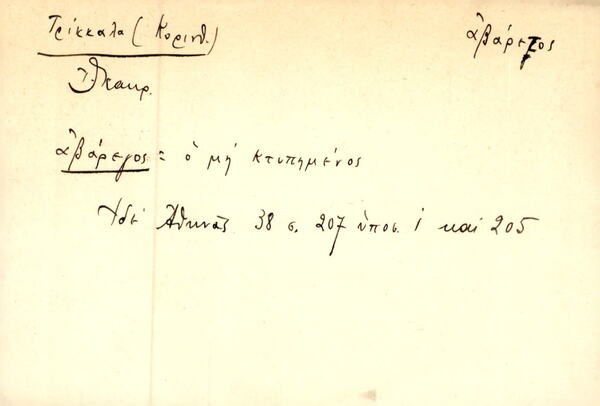 Τρίκκαλα (Κορινθ.)
ἀβάρετος
ἀβάρεγος = ὁ μή κτυπημένος
Ἰδέ Ἀθηνᾶς 38 σ. 207 ὑποσ. 1 καί 205